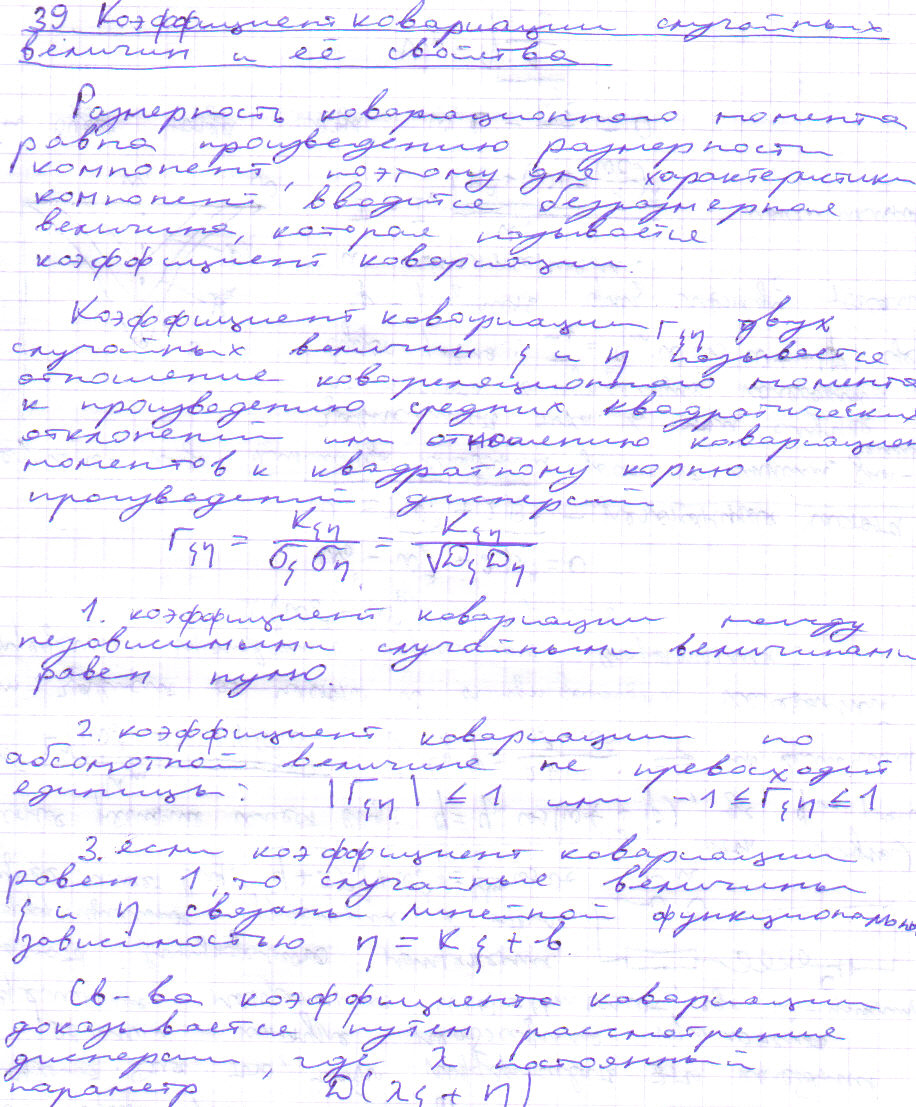 39 Коэффициент ковариации случайных
величин и её свойства
Размерность ковариационного момента
равна произведению размерности
компонент, поэтому для характеристики
компонент вводится безразмерная
величина, которая называется
коэффициент ковариации.
Коэффициент ковариации r_ξη двух
случайных величин ξ и η называется
отношение коваренационного момента
к произведению средних квадратических
отклонений или отношению ковариацион
моментов к квадратному корню
произведений дисперсий
r_ξη = K_ξη / (σ_ξ σ_η) = K_ξη / √(D_ξ D_η)
1. коэффициент ковариации между
независимыми случайными величинами
равен нулю.
2. коэффициент ковариации по
абсолютной величине не превосходит
единицы: |r_ξη| ≤ 1 или -1 ≤ r_ξη ≤ 1
3. если коэффициент ковариации
равен 1, то случайные величины
ξ и η связаны линейной функциональной
зависимостью η = Kξ + в.
Св-ва коэффициента ковариации
доказывается путём рассмотрение
дисперсии, где λ постоянный
параметр D(λξ + η)